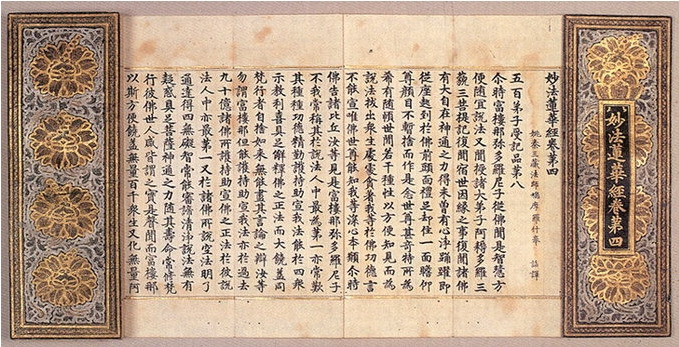 妙法蓮華經卷第四
妙法蓮華經卷第四
姚秦三藏法師鳩摩羅什奉 詔譯
五百弟子受記品第八
尒時富樓那弥多羅尼子從佛聞是智慧方
便随宜說法又聞授諸大弟子阿耨多羅三
藐三菩提記復聞宿世因緣之事復聞諸佛
有大自在神通之力得未曾有心淨踊躍即
從座起到於佛前頭面禮足却住一面瞻仰
尊顔目不暫捨而作是念世尊甚奇特所爲
希有随順世間若干種性以方便知見而爲
說法拔出衆生處處貪著我等於佛功德言
不能宣唯佛世尊能知我等深心本願尒時
佛告諸比丘汝等見是富樓那弥多羅尼子
不我常稱其於說法人中最爲第一亦常歎
其種種功德精勤護持助宣我法能於四衆
示教利喜具足解釋佛之正法而大饒益同
梵行者自捨如來無能盡其言論之辯汝等
勿謂富樓那但能護持助宣我法亦於過去
九十億諸佛所護持助宣佛之正法於彼說
法人中亦最第一又於諸佛所說空法明了
通達得四無礙智常能審諦清淨說法無有
疑惑具足菩薩神通之力随其壽命常修梵
行彼佛世人咸皆謂之實是聲聞而富樓那
以斯方便饒益無量百千衆生又化無量阿